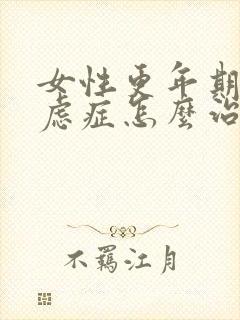 女性更年期
虑症怎麼治
不羁江月